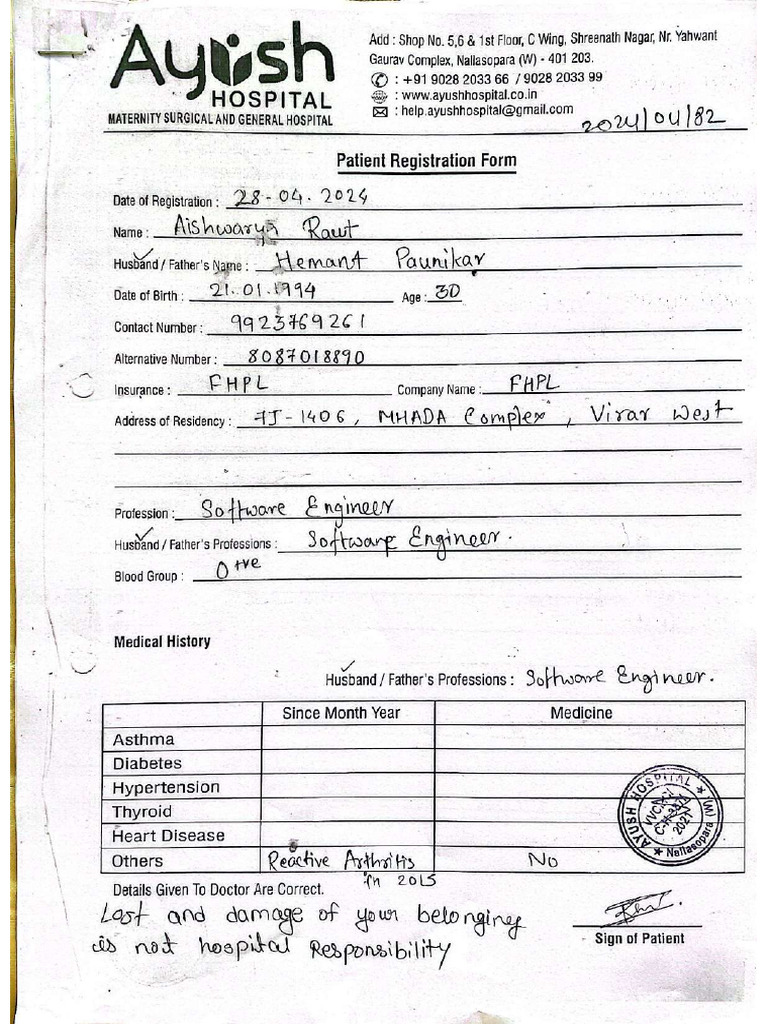 Ayush
HOSPITAL
MATERNITY SURGICAL AND GENERAL HOSPITAL
Add : Shop No. 5,6 & 1st Floor, C Wing, Shreenath Nagar, Nr. Yahwant
Gaurav Complex, Nallasopara (W) - 401 203.
: +91 9028 2033 66 / 9028 2033 99
: www.ayushhospital.co.in
: help.ayushhospital@gmail.com
2024/04/82
Patient Registration Form
Date of Registration : 28-04-2024
Name : Aishwarya Raut
Husband / Father's Name : Hemant Paunikar
Date of Birth : 21.01.1994 Age : 30
Contact Number : 9923769261
Alternative Number : 8087018890
Insurance : FHPL Company Name : FHPL
Address of Residency : 7J-1406, MHADA Complex, Virar West
Profession : Software Engineer
Husband / Father's Professions : Software Engineer.
Blood Group : O+ve
Medical History
Husband / Father's Professions : Software Engineer.
Since Month Year Medicine
Asthma
Diabetes
Hypertension
Thyroid
Heart Disease
Others Reactive Arthritis No
in 2015
Details Given To Doctor Are Correct.
Lost and damage of your belonging
is not hospital Responsibility
Sign of Patient
AYUSH HOSPITAL
(W) Nallasopara
2021